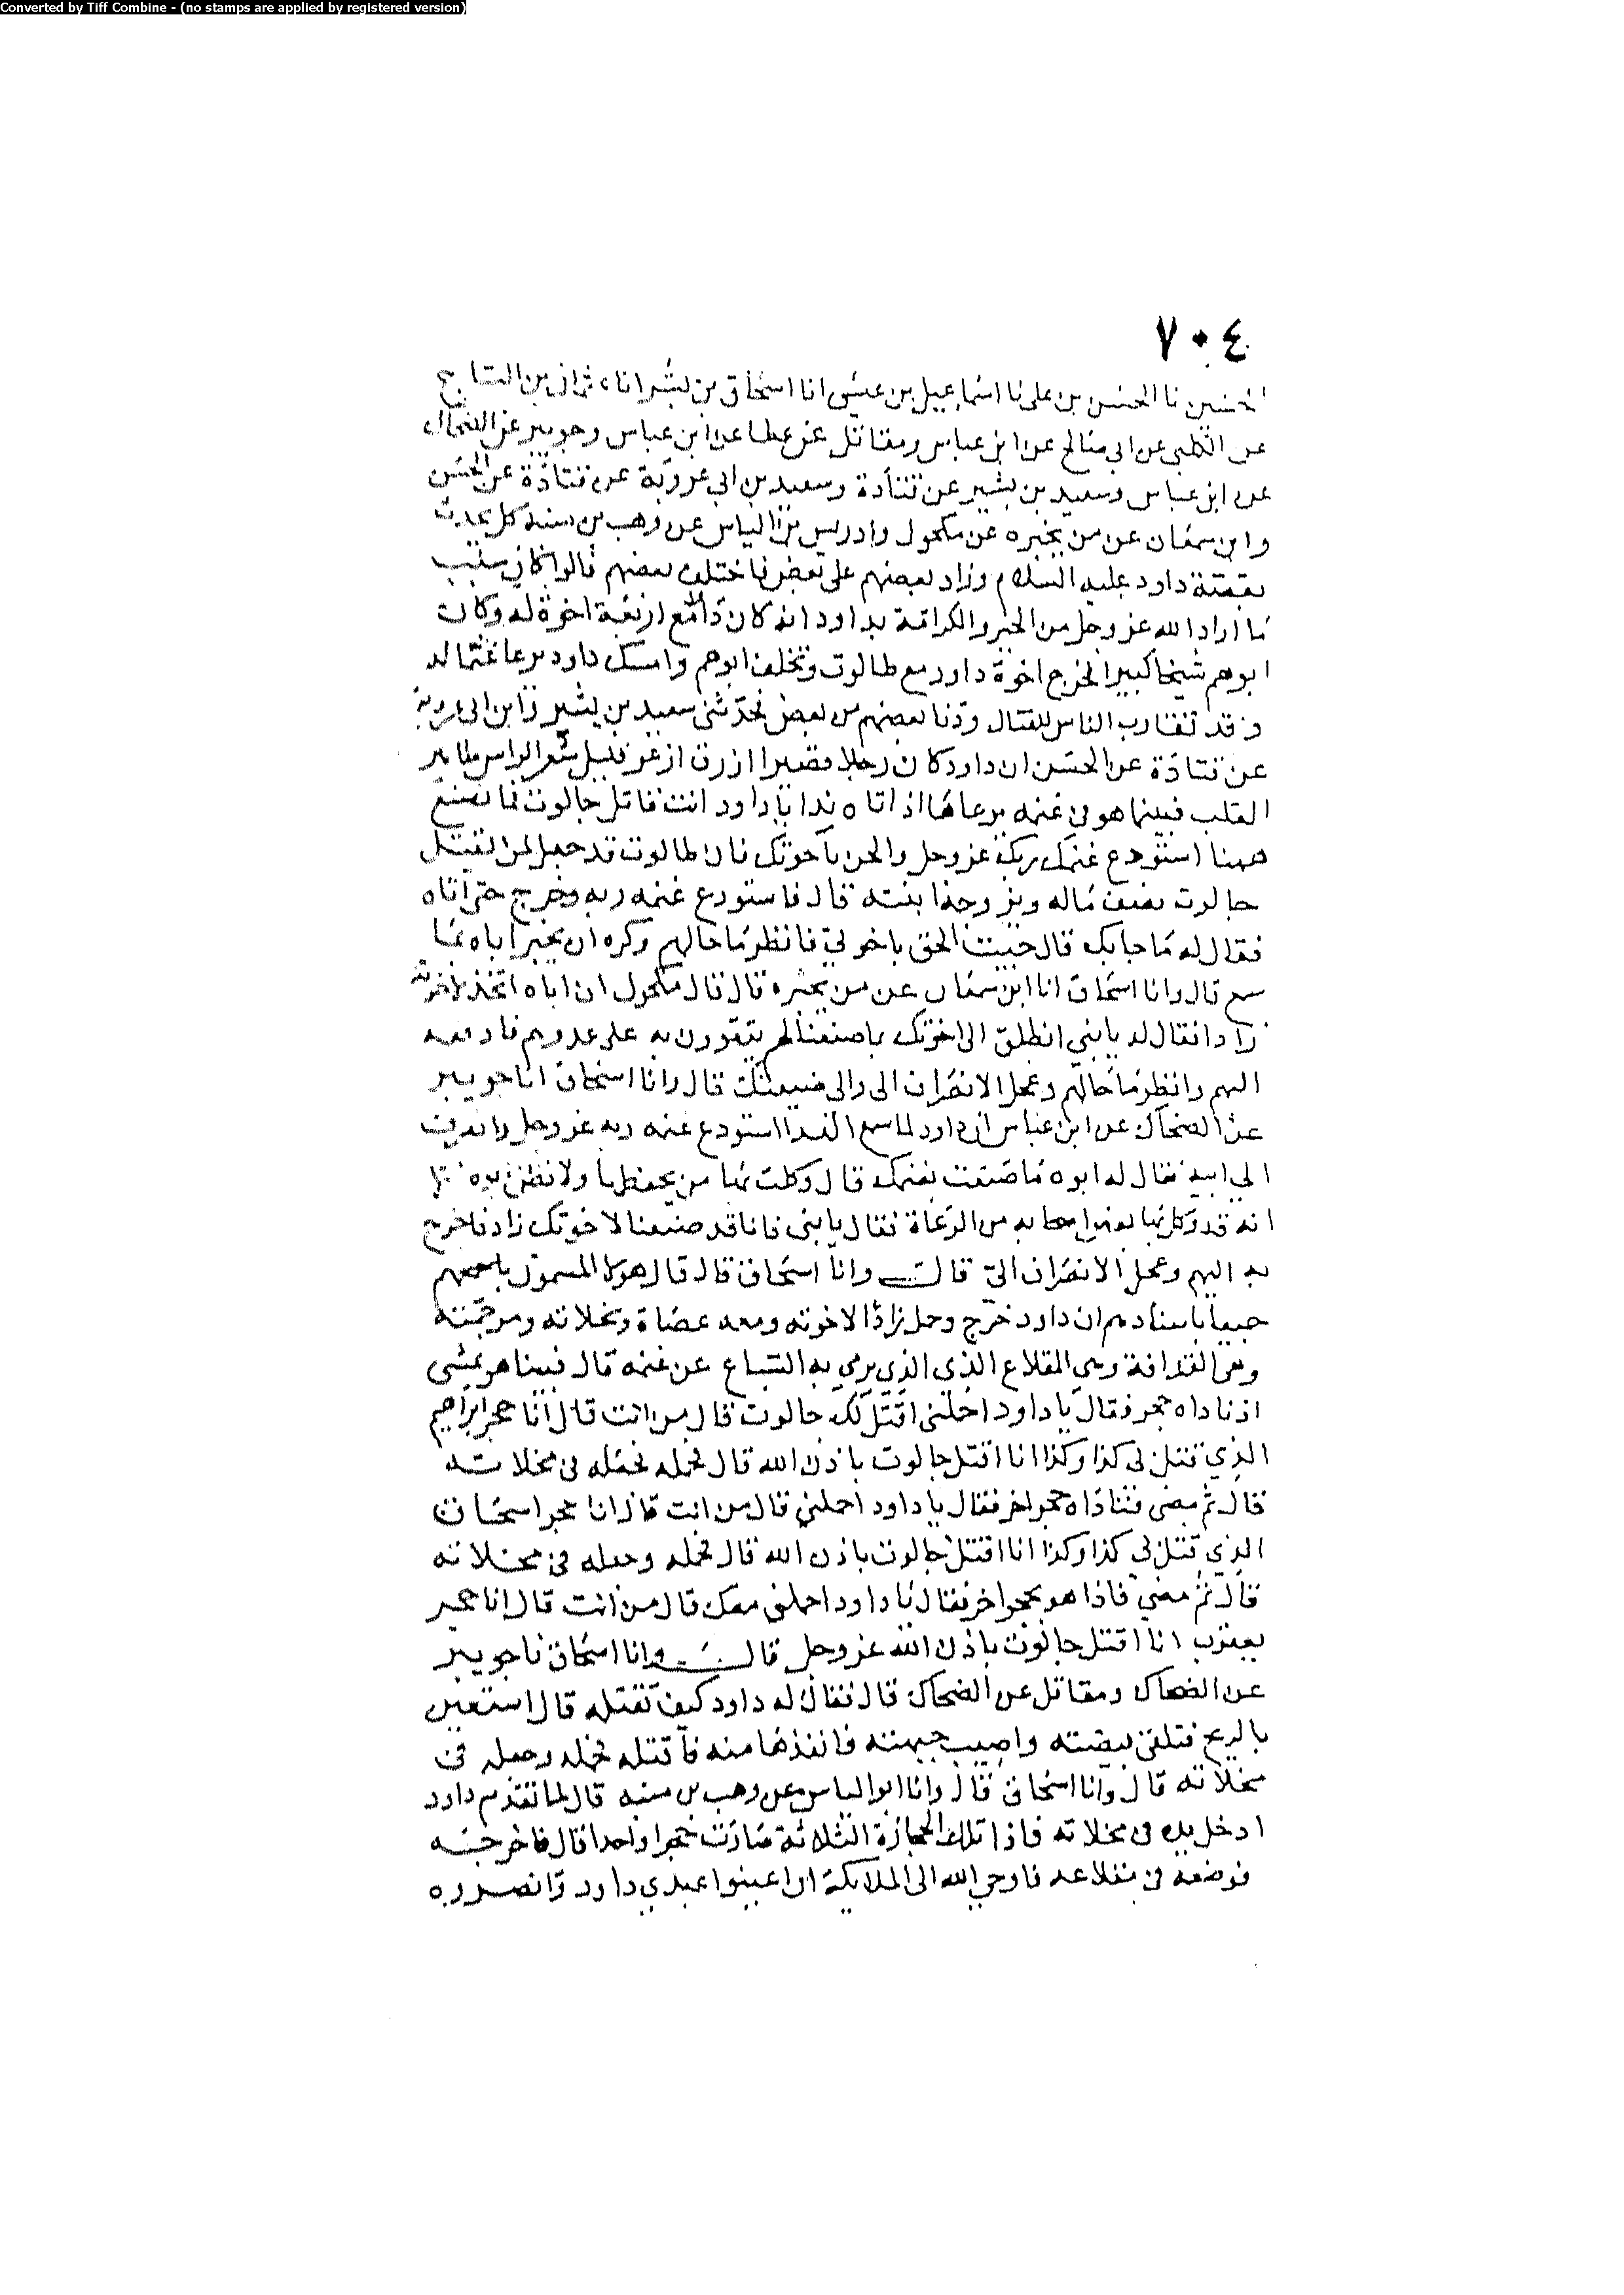 Converted by Tiff Combine - (no stamps are applied by registered version)
٧٠٤
الحسين نا الحسن بن على نا اسماعيل بن عيسى انا اسحاق بن بشر انا عثمان بن الساج
عن الكلبى عن ابى صالح عن ابن عباس ومقاتل عن عطا عن ابن عباس وجويبر عن الضحاك
عن ابن عباس وسعيد بن بشير عن قتادة وسعيد بن ابى عروبة عن قتادة عن الحسن
وابن سمعان عن من يخبره عن مكحول وادريس بن الياس عن وهب بن منبه كل يحدث
بقصة داود عليه السلام وزاد بعضهم على بعض فاختلف بعضهم قالوا كان سبب
ما اراد الله عز وجل من الخير والكرامة بداود انه كان رابع اربعة اخوة له وكان
ابوهم شيخا كبيرا فخرج اخوة داود مع طالوت وتخلف ابوهم وامسك داود يرعا غنما له
وقد تقارب الناس للقتال ودنا بعضهم من بعض فحدثنى سعيد بن بشير وابن ابى عروبة
عن قتادة عن الحسن ان داود كان رجلا قصيرا ازرق ازعر قليل شعر الراس طاهر
القلب فبينما هو فى غنمه يرعاها اذ اتاه ندا يا داود انت قاتل جالوت فما تصنع
ههنا استودع غنمك ربك عز وجل والحق باخوتك فان طالوت قد جعل لمن يقتل
جالوت نصف ماله ويزوجه ابنته قال فاستودع غنمه ربه وخرج حتى اتاه
فقال له ما جا بك قال جيت الحق باخوتى فانظر ما حالهم وكره ان يخبر اباه بما
سمع قال وانا اسحاق انا ابن سمعان عن من يخبره قال قال مكحول ان اباه اتخذ لاخوته
زادا فقال له يا بني انطلق الى اخوتك بما صنعنا لهم يتقوون به على عدوهم فادفعه
اليهم وانظر ما حالهم وعجل الانصراف الى والى ضيعتك قال وانا اسحاق انا جويبر
عن الضحاك عن ابن عباس ان داود لما سمع الندا استودع غنمه ربه عز وجل وانصرف
الى ابيه فقال له ابوه ما صنعت بغنمك قال وكلت بها من يحفظها ولا نظن ابوه الا
انه قد وكل بها بعض اصحابه من الرعاة فقال يا بنى فانا قد صنعنا لاخوتك زادا فاخرج
به اليهم وعجل الانصراف الىّ قال وانا اسحاق قال قال هولا المسمون باسمهم
جميعا باسنادهم ان داود خرج وحمل زادًا لاخوته ومعه عصاة ومخلاته ومرجمته
وهى القذافة وهى المقلاع الذى الذى يرمي به السباع عن غنمه قال فبينا هو يمشى
اذ ناداه حجر فقال يا داود احملنى اقتل لك جالوت قال من انت قال انا حجر ابراهيم
الذي قتل بى كذا وكذا انا اقتل جالوت باذن الله قال فحمله فجعله فى مخلاته
قال ثم مضى فناداه حجر اخر فقال يا داود احملني قال من انت قال انا حجر اسحاق
الذي قتل بى كذا وكذا انا اقتل جالوت باذن الله قال فحمله وجعله فى مخلاته
قال ثم مضى فاذا هو بحجر اخر فقال يا داود احملنى معك قال من انت قال انا حجر
يعقوب انا اقتل جالوت باذن الله عز وجل قال وانا اسحاق نا جويبر
عن الضحاك ومقاتل عن الضحاك قال فقال له داود كيف تقتله قال استعين
بالريح فتلقى بيضته واصيب جبهته فانفذها منه فاقتله فحمله وجعله فى
مخلاته قال وانا اسحاق قال وانا ابو الياس عن وهب بن منبه قال لما تقدم داود
ادخل يده فى مخلاته فاذا تلك الحجارة الثلاثة صارت حجرا واحدا قال فاخرجه
فوضعه فى مقلاعه فاوحى الله الى الملايكة ان اعينوا عبدي داود وانصروه